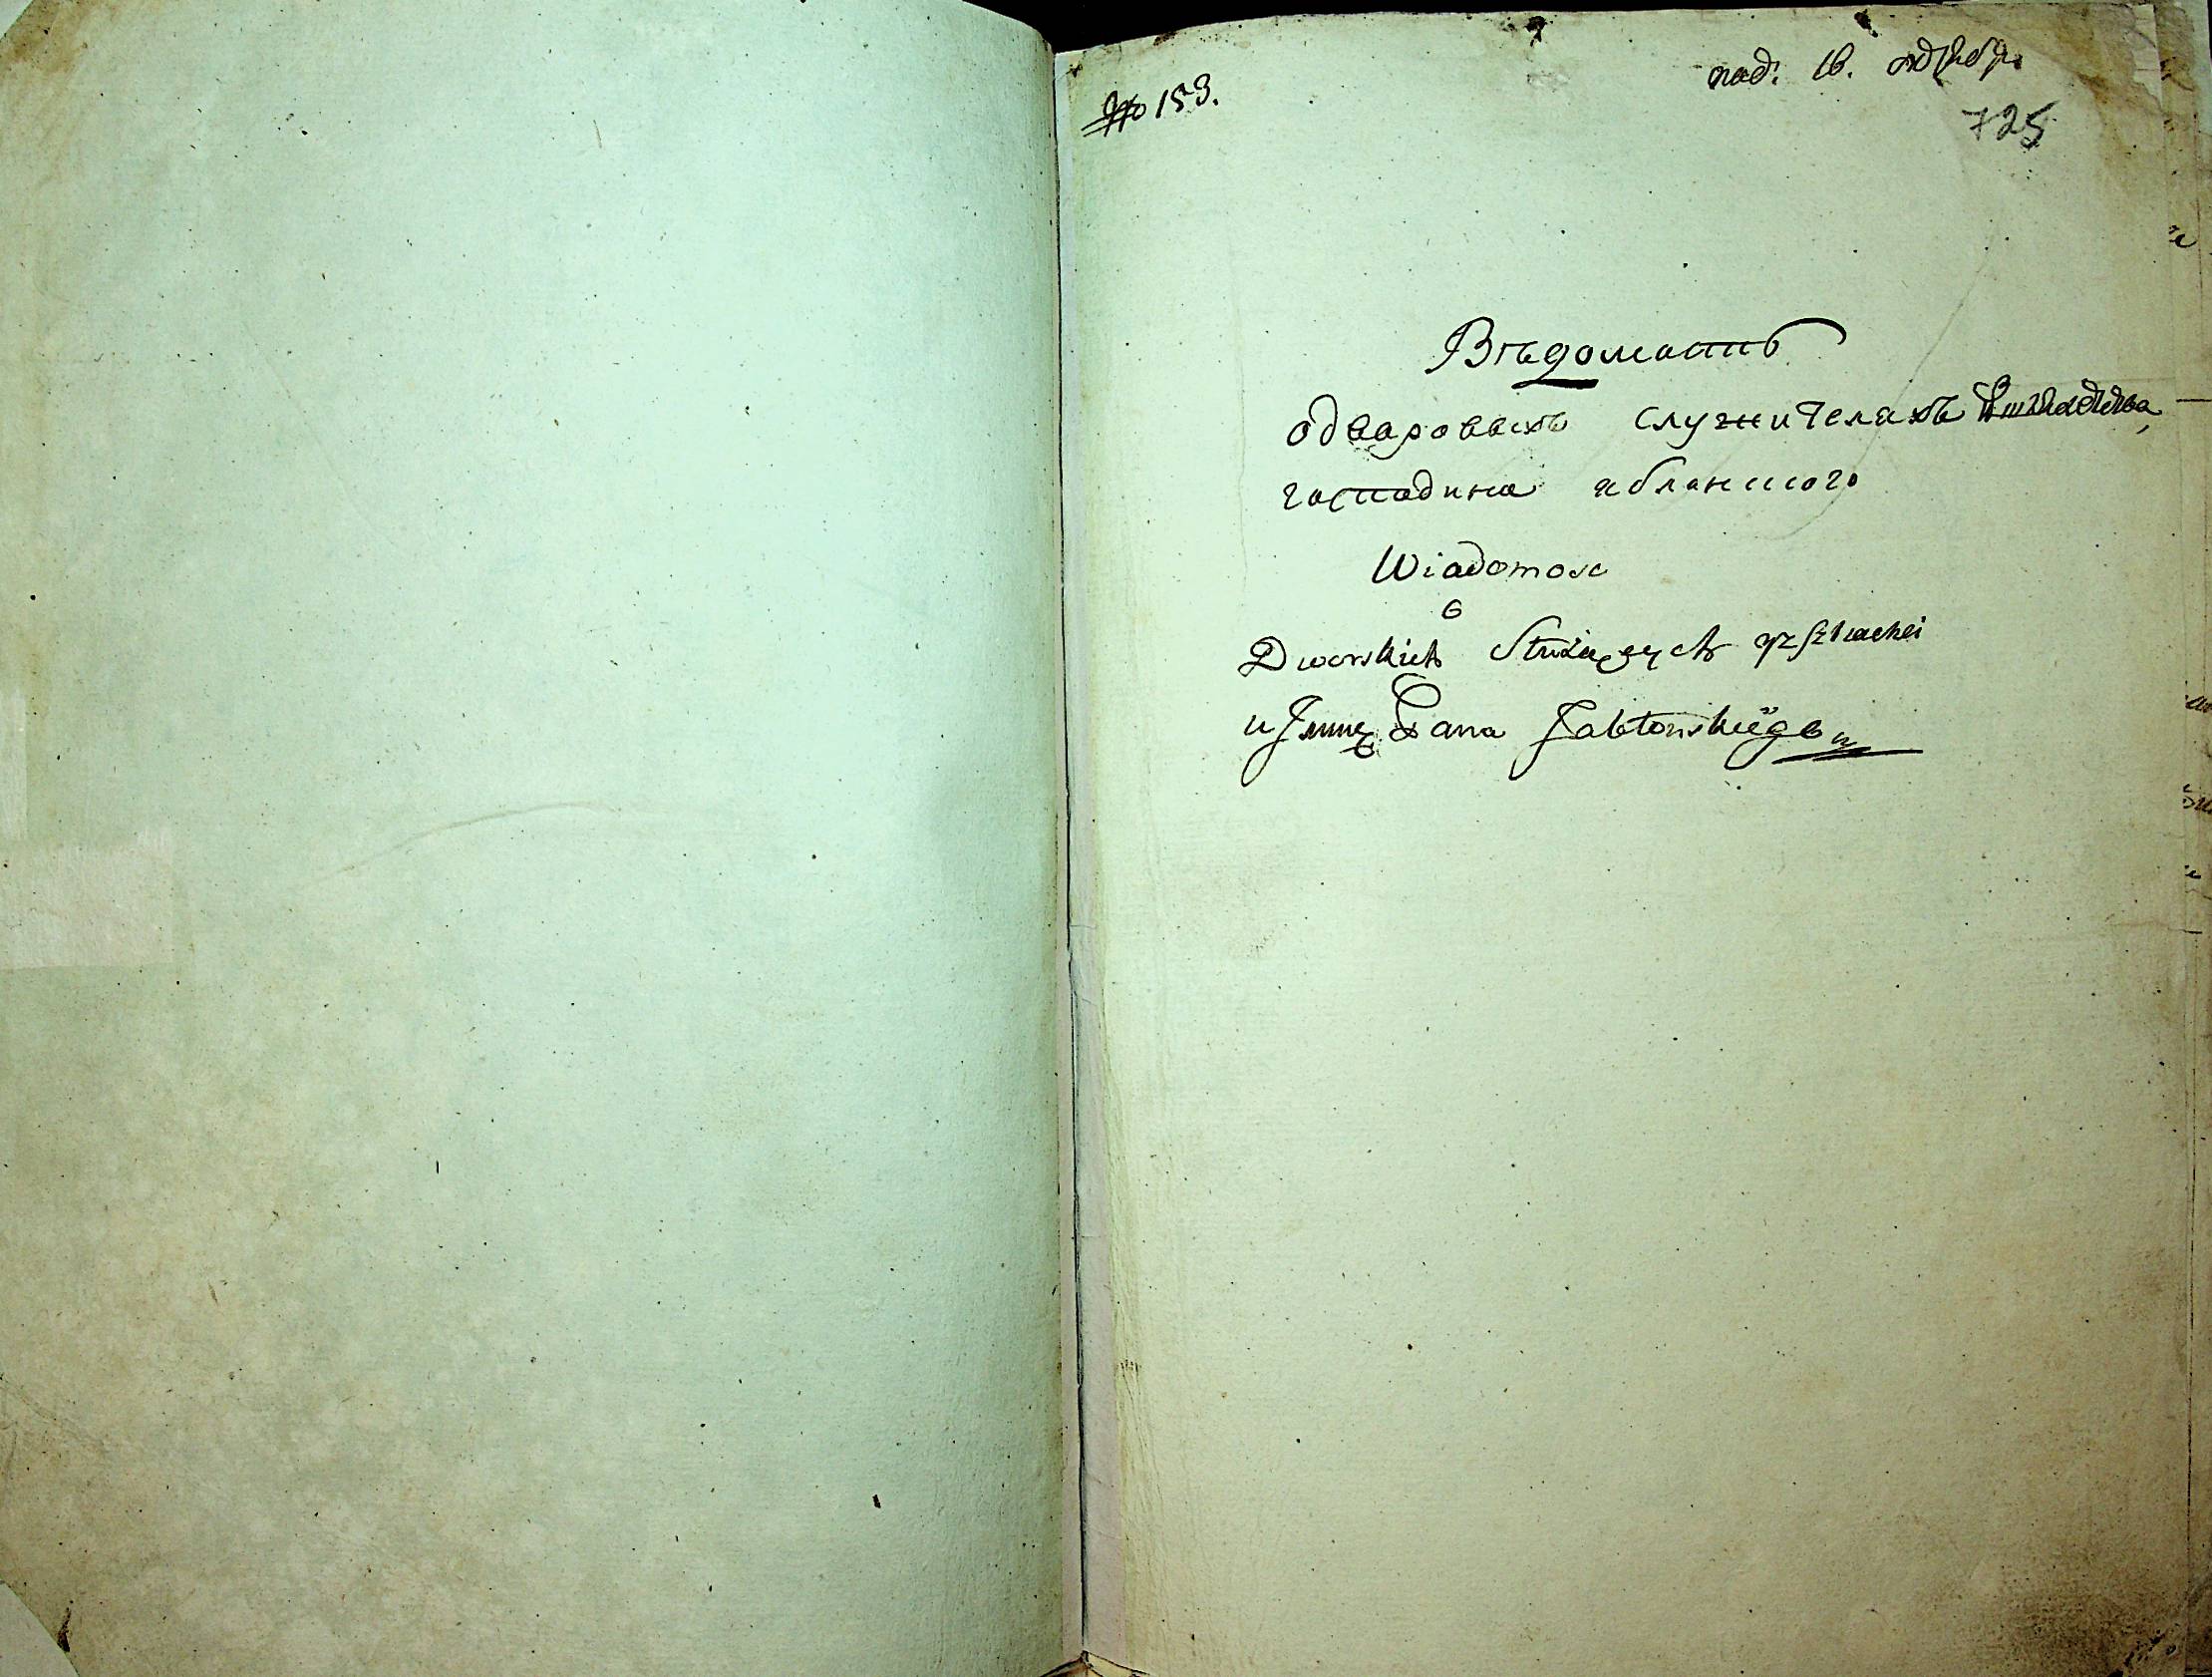 № 153.
под. 16. октебр.
725
Вѣдомость
одворовыхъ служителяхъ
господина яблонского
Wiadomosc
o
Dworskich Służących z szlachci
u Jmię Pana Jabłonskiego